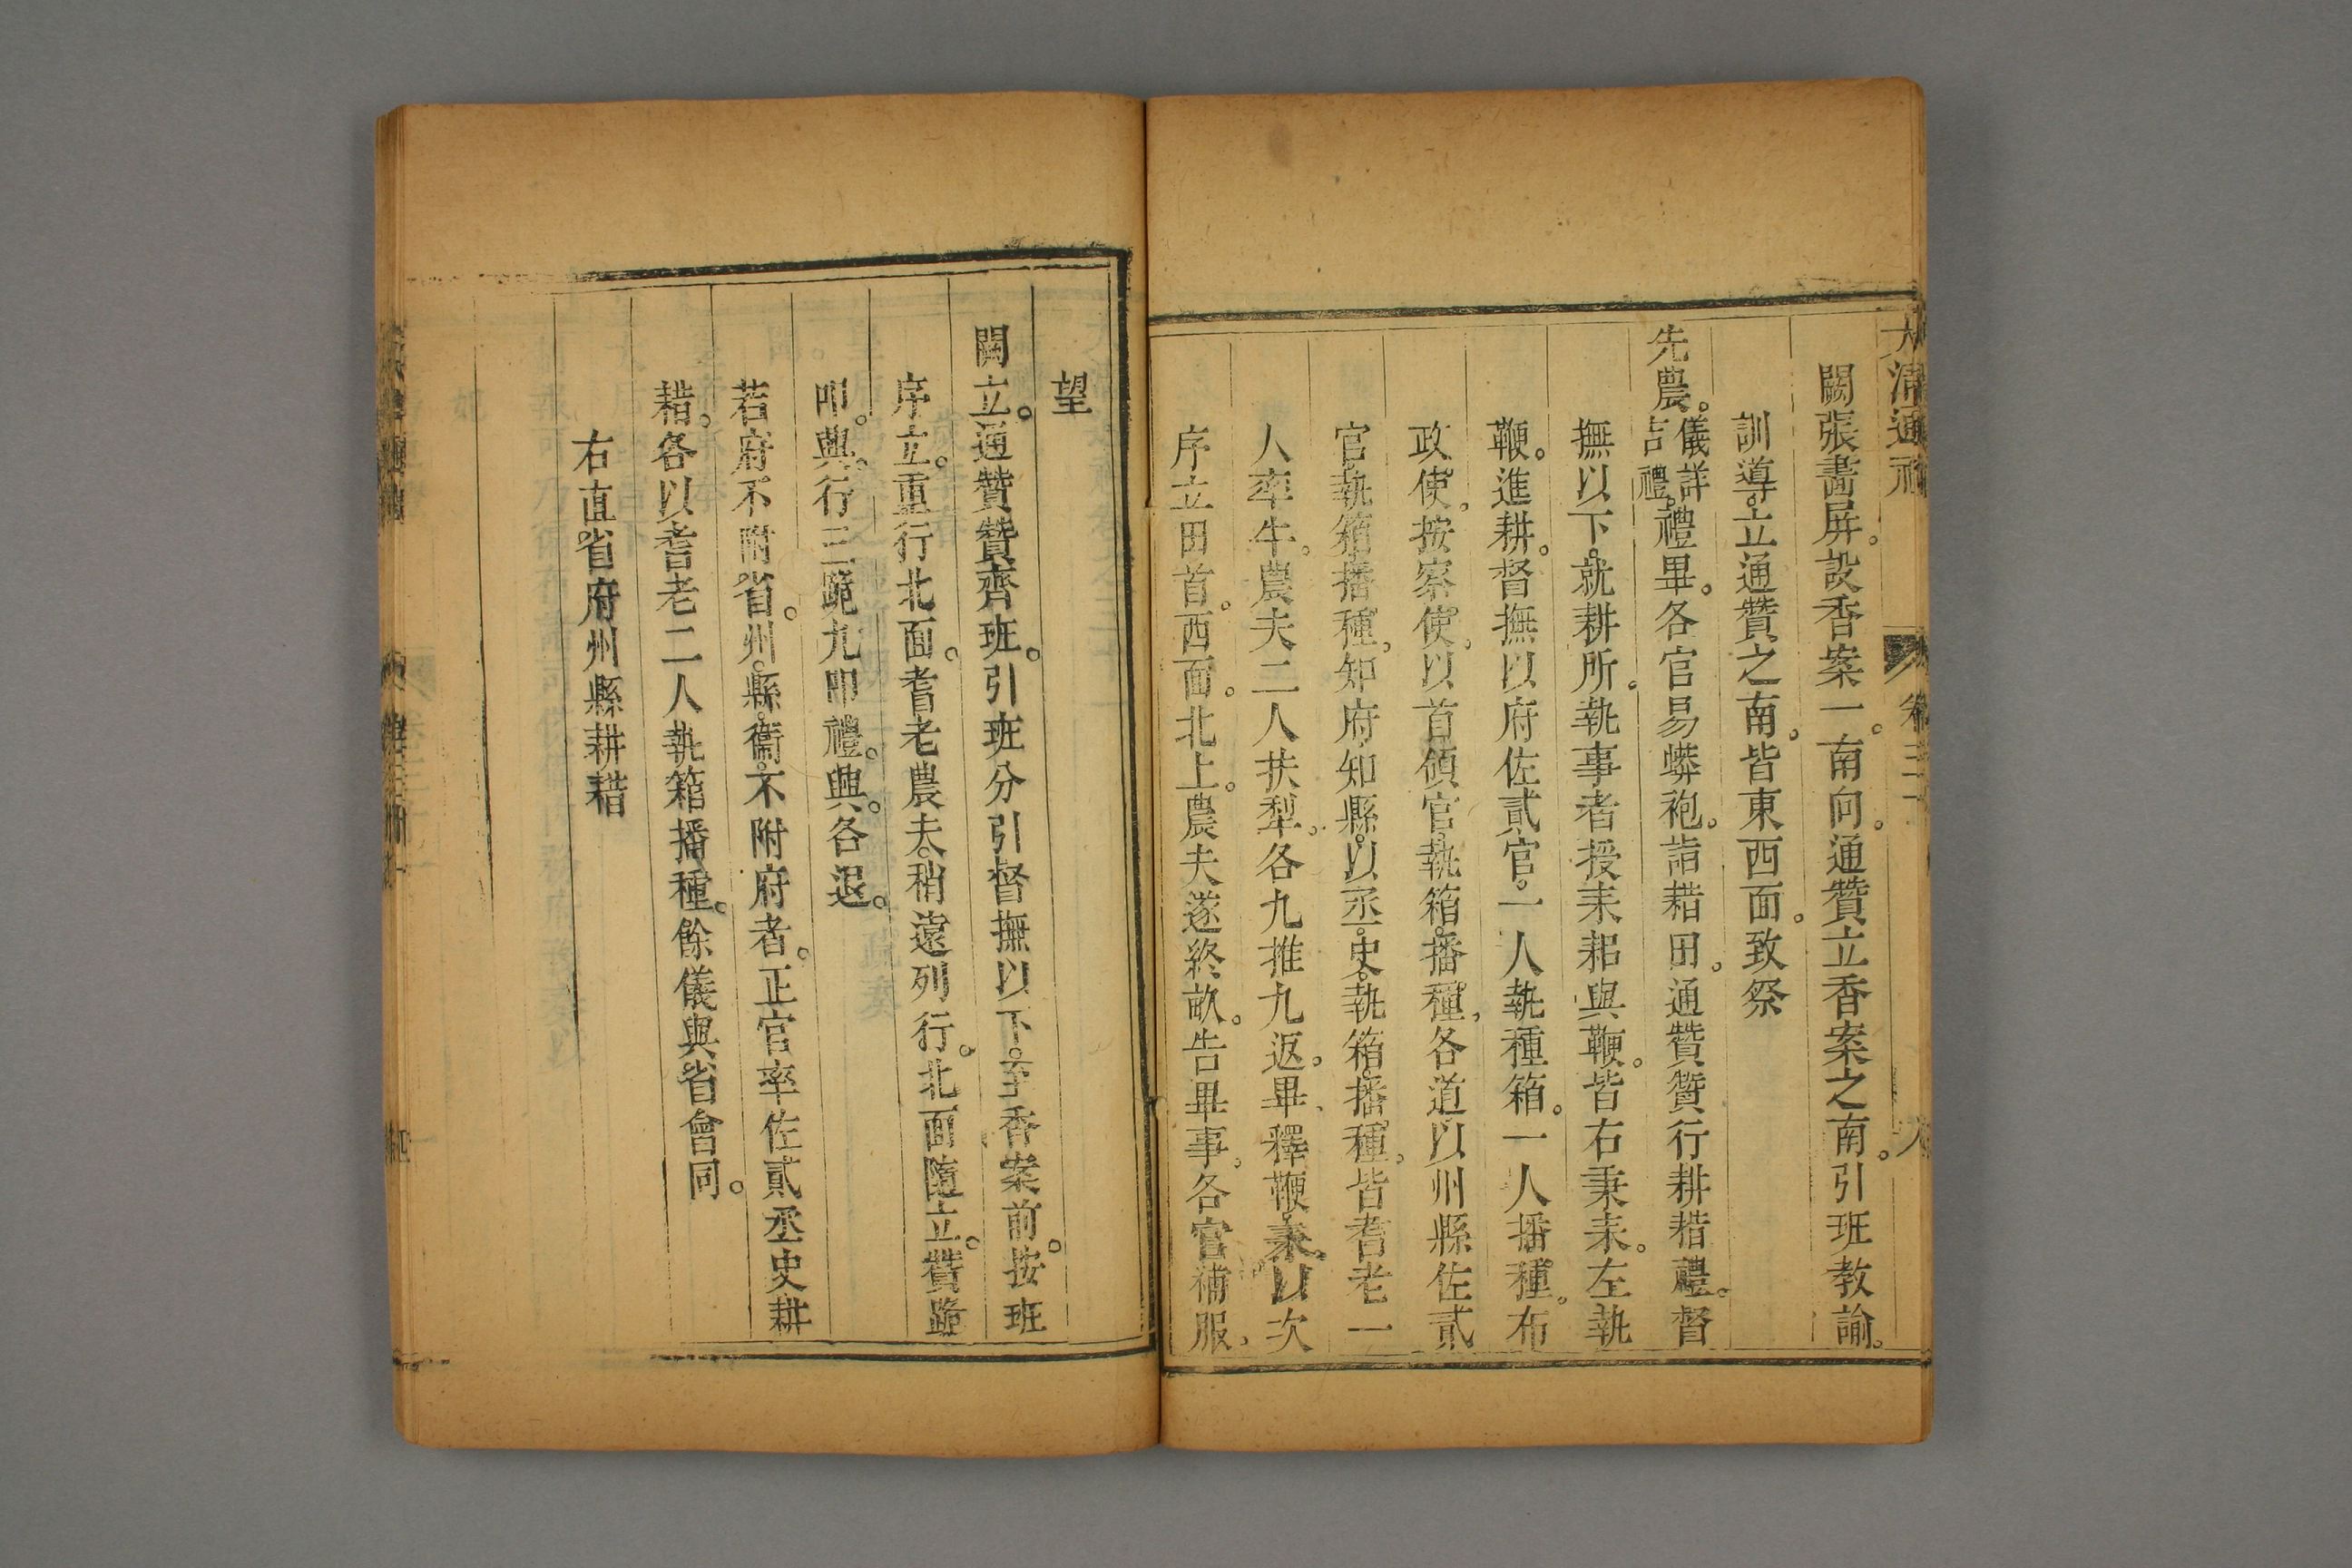 大清通禮 卷三十 八
闕張畵屏。設香案一。南向。通贊立香案之南。引班教諭。
訓導。立通贊之南。皆東西面。致祭
先農。儀詳吉禮。禮畢。各官易蟒袍。詣耤田。通贊贊行耕耤禮。督
撫以下。就耕所。執事者授耒耜與鞭。皆右秉耒。左執
鞭。進耕。督撫以府佐貳官。一人執種箱。一人播種。布
政使。按察使。以首領官。執箱。播種。各道以州縣佐貳
官執箱播種。知府知縣。以丞。史。執箱。播種。皆耆老一
人牽牛。農夫二人扶犁。各九推九返。畢、釋鞭耒。以次
序立田首。西面。北上。農夫遂終畝。告畢事。各官補服。
望
闕立。通贊贊齊班。引班分引督撫以下。至香案前。按班
序立。重行北面。耆老農夫。稍遠列行。北面隨立。贊跪
叩。興。行三跪九叩禮。興。各退。
若府不附省。州。縣。衞。不附府者。正官率佐貳丞史耕
耤。各以耆老二人執箱播種。餘儀與省會同。
右直省府州縣耕耤